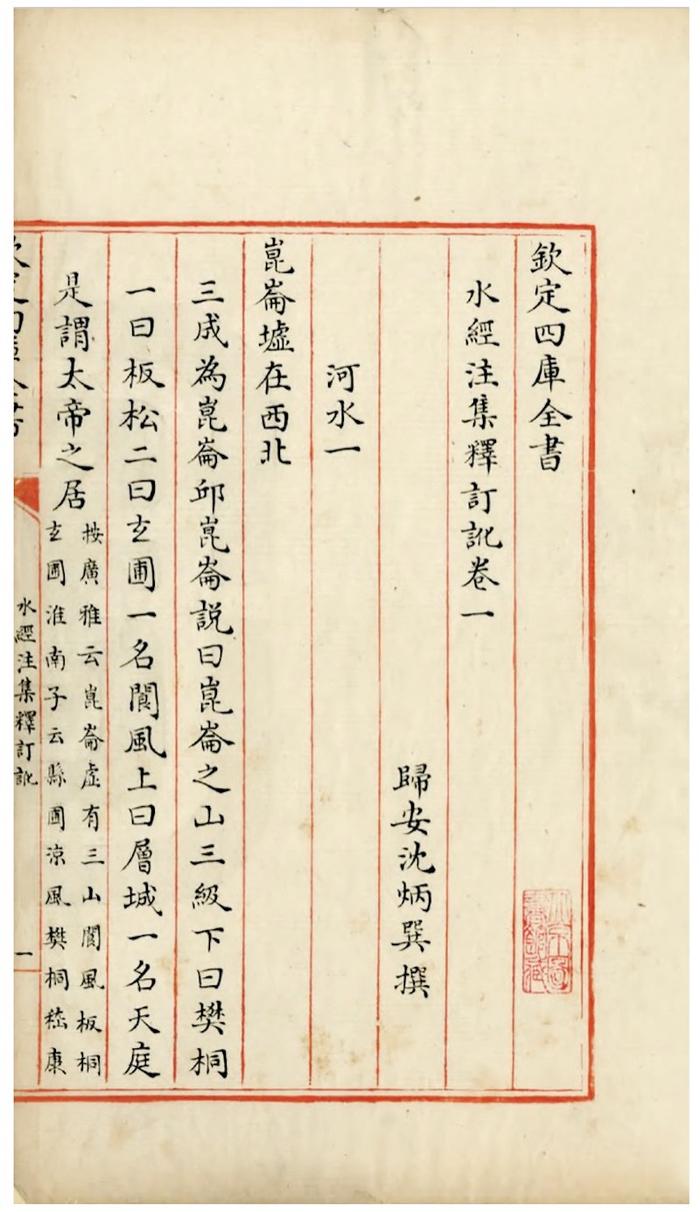 欽定四庫全書
水經注集釋訂訛卷一
歸安沈炳巽撰
河水一
崑崙墟在西北
三成為崑崙邱崑崙説曰崑崙之山三級下曰樊桐
一曰板松二曰玄圃一名閬風上曰層城一名天庭
是謂太帝之居
按廣雅云崑崙虛有三山閬風板桐
玄圃淮南子云縣圃涼風樊桐嵇康
水經注集釋訂訛
一